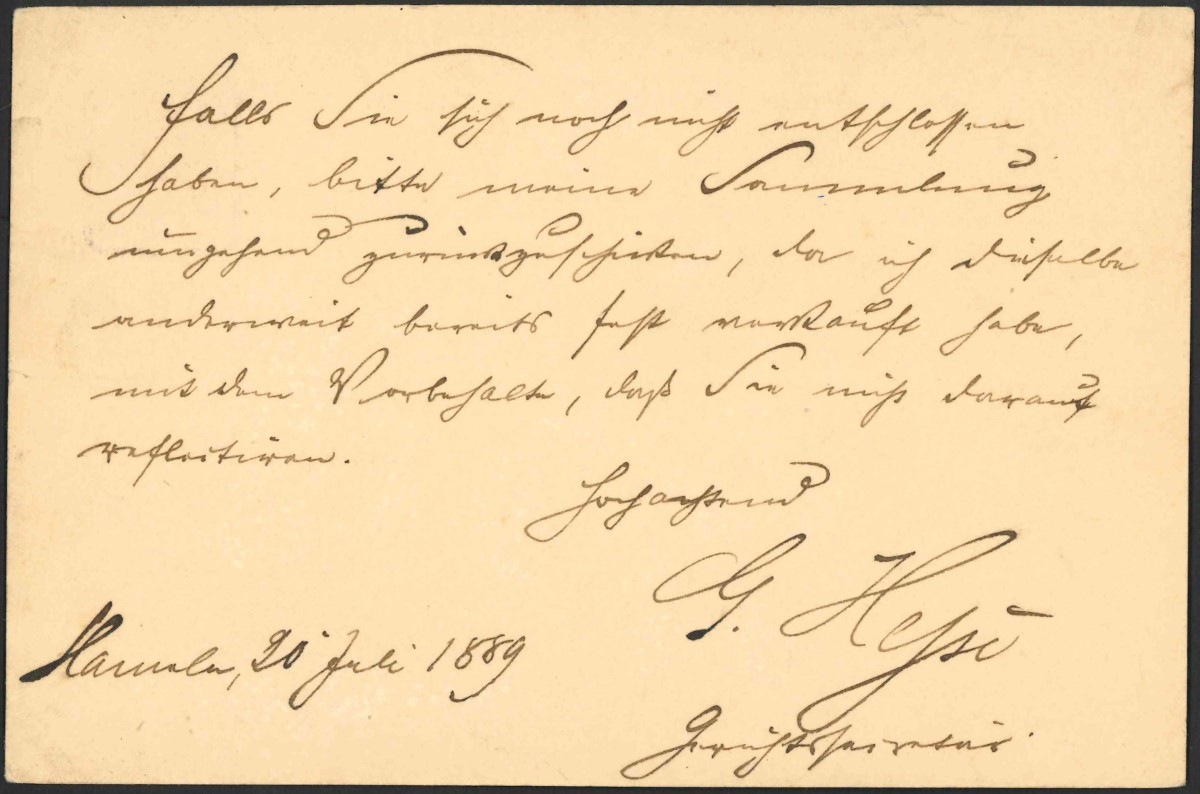 Falls Sie sich noch nicht entschlossen
haben, bitte meine Sammlung
umgehend zurückzuschicken, da ich dieselbe
anderweit bereits fest verkauft habe,
mit dem Vorbehalte, daß Sie nicht darauf
reflectiren.
Hochachtend
G. Heße
Hameln, 20 Juli 1889
Gerichtssecretär